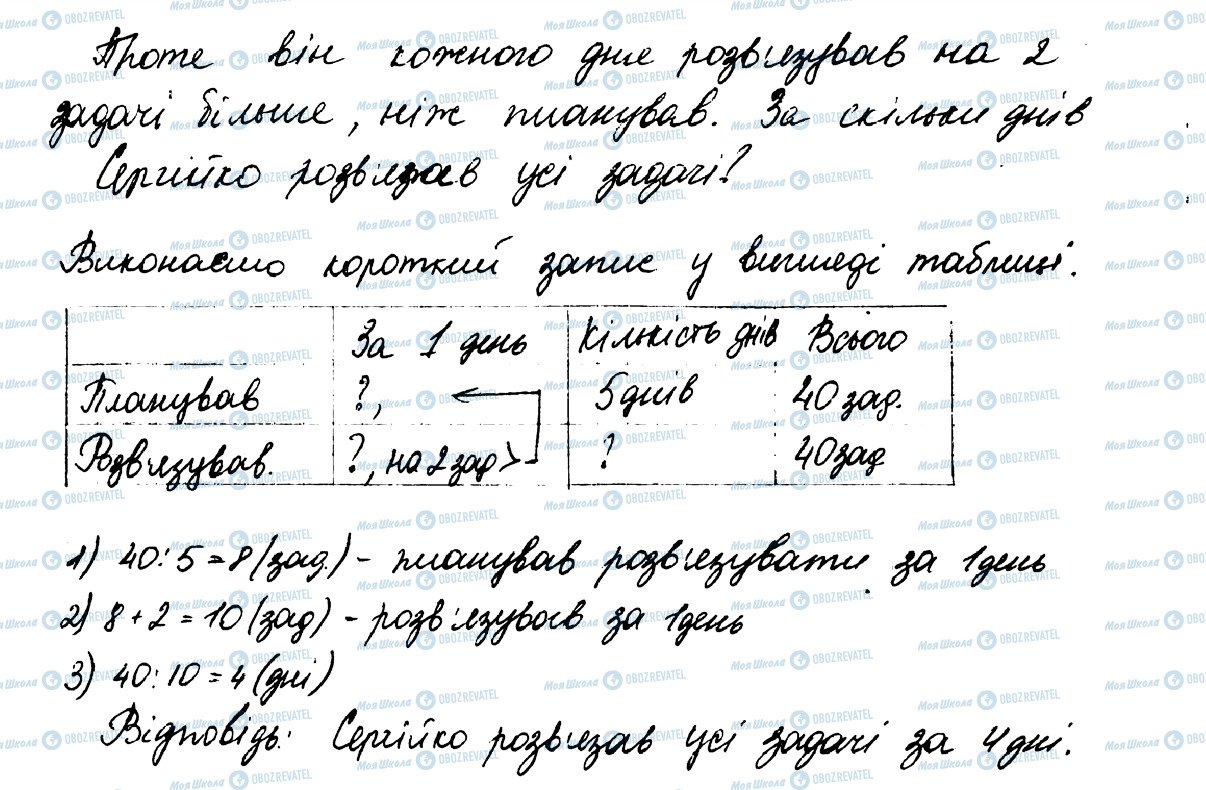 Проте він кожного дня розв'язував на 2
задачі більше, ніж планував. За скільки днів
Сергійко розв'язав усі задачі?
Виконаємо короткий запис у вигляді таблиці.
За 1 день Кількість днів Всього
Планував ?, 5 днів 40 зад.
Розв'язував. ?, на 2 зад > ? 40 зад
1) 40 : 5 = 8 (зад.) - планував розв'язувати за 1 день
2) 8 + 2 = 10 (зад) - розв'язував за 1 день
3) 40 : 10 = 4 (дні)
Відповідь: Сергійко розв'язав усі задачі за 4 дні.